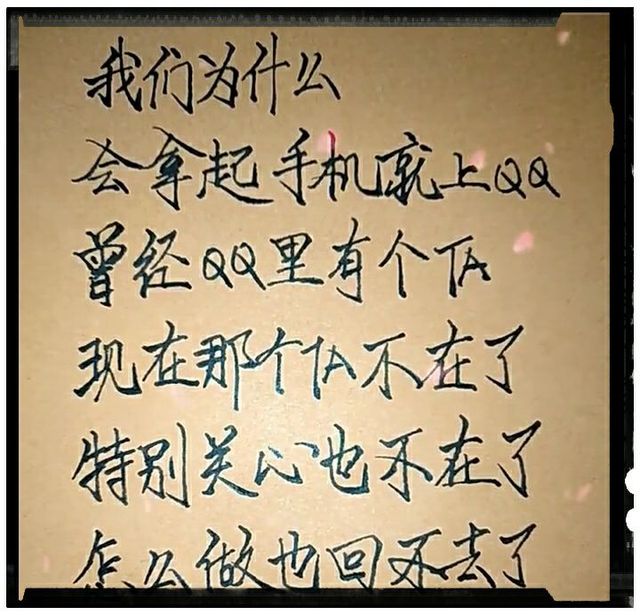 我们为什么
会拿起手机就上QQ
曾经QQ里有个TA
现在那个TA不在了
特别关心也不在了
怎么做也回不去了